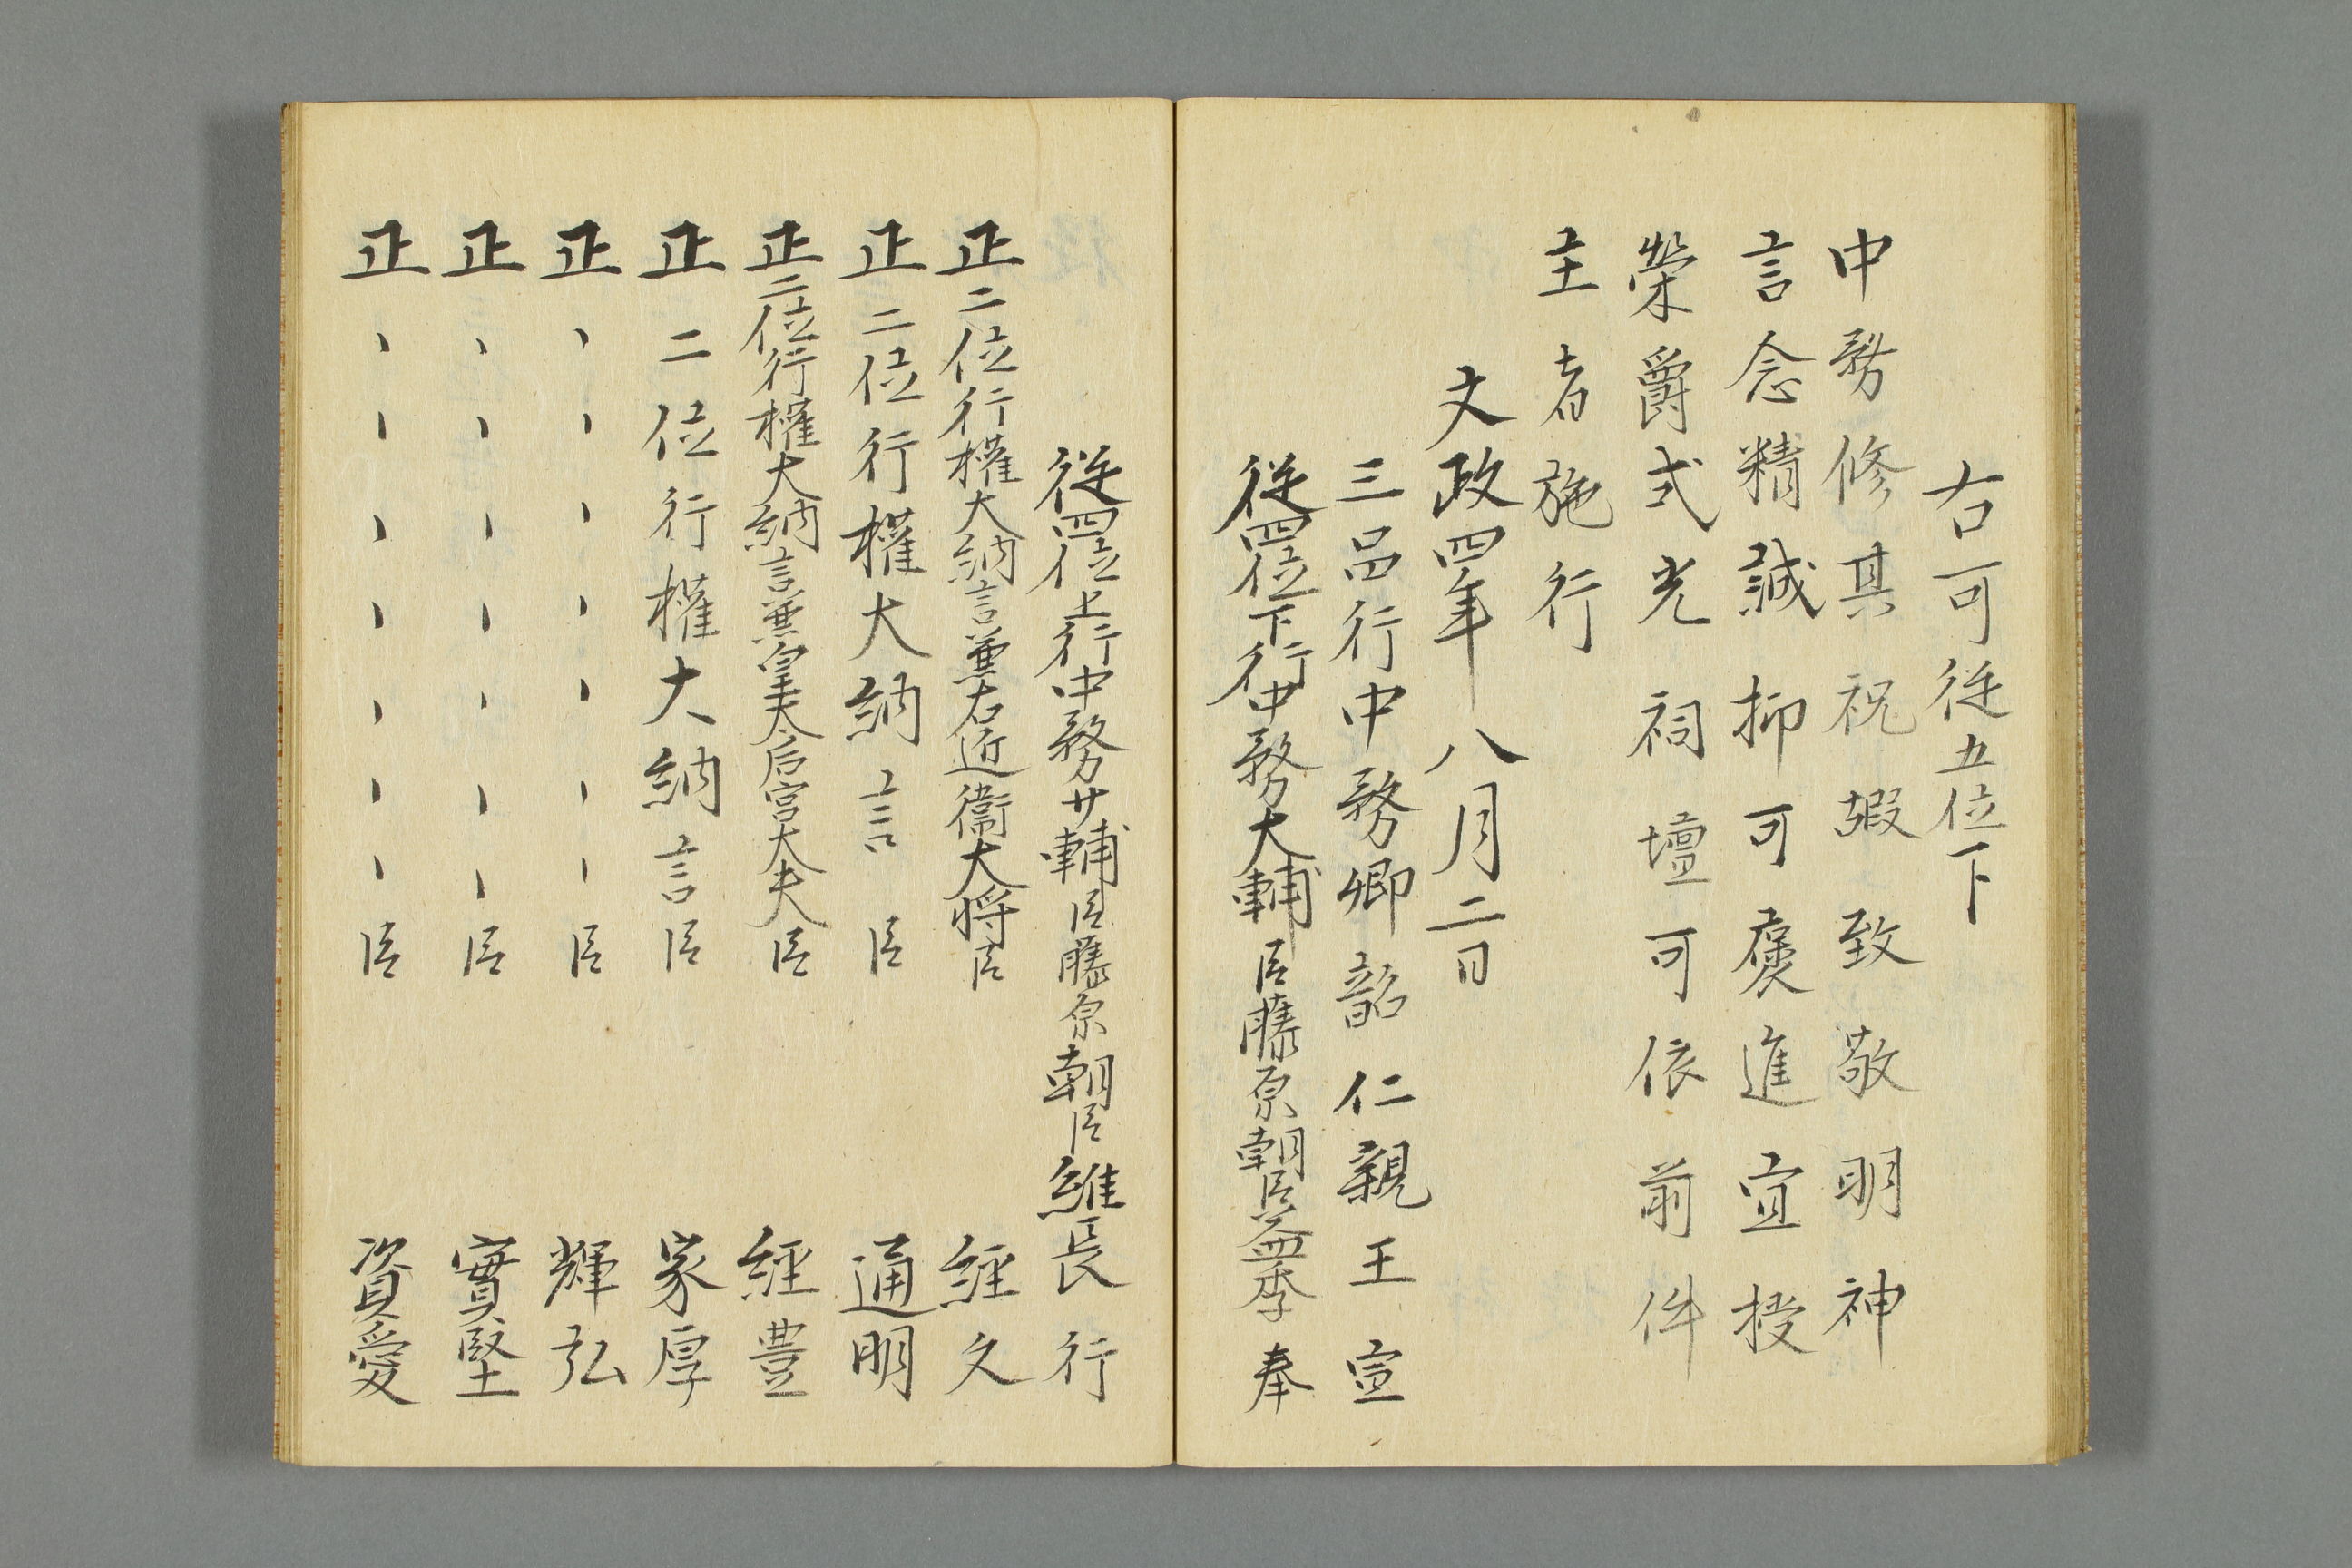 右可従五位下
中務修其祝嘏致敬明神
言念精誠抑可褒進宜授
榮爵式光祠壇可依前件
主者施行
文政四年八月二日
三品行中務卿韶仁親王宣
従四位下行中務大輔臣藤原朝臣益季奉
従四位上行中務少輔臣藤原朝臣維長行
正二位行權大納言兼右近衛大将臣 經久
正二位行權大納言臣 通明
正二位行權大納言兼皇太后宮大夫臣 經豊
正二位行權大納言臣 家厚
正、、、、、、臣 輝弘
正、、、、、、臣 實堅
正、、、、、、臣 資愛